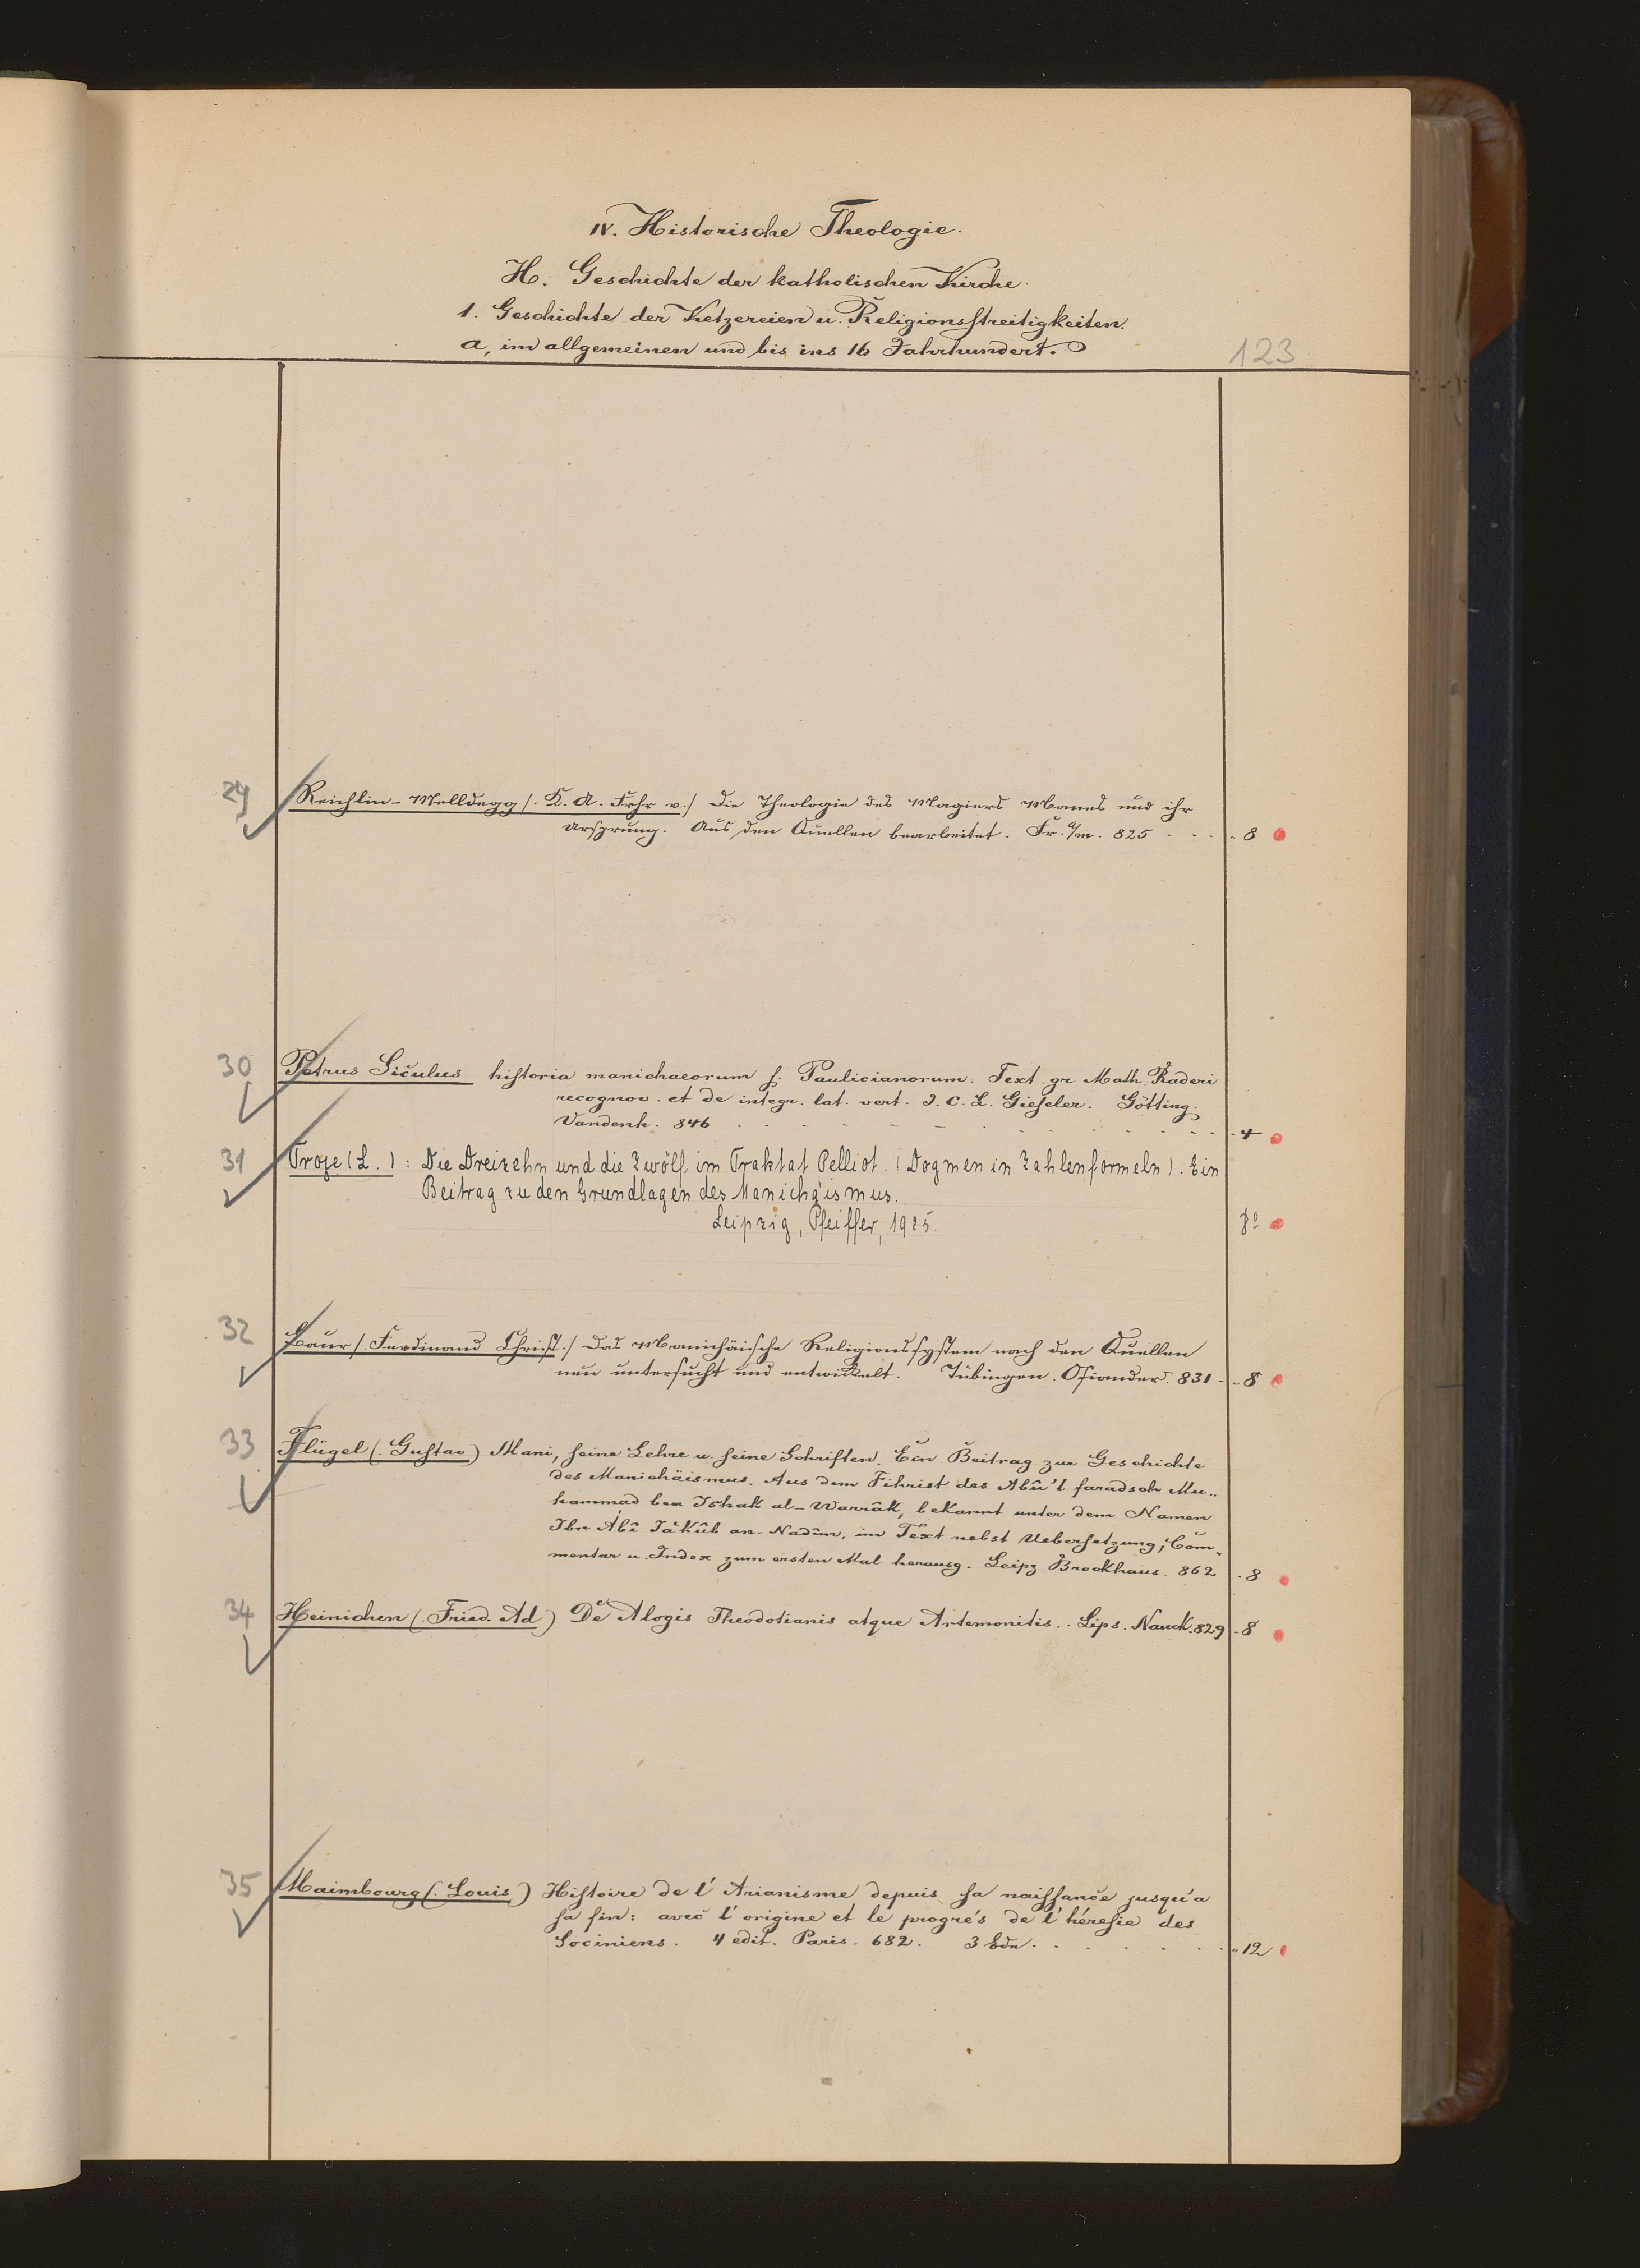 IV. Historische Theologie.
H. Geschichte der katholischen Kirche.
1. Geschichte der Ketzereien u. Religionsstreitigkeiten.
a, im allgemeinen und bis ins 16 Jahrhundert.
123
29 Reichlin-Melldegg (. K. A. Frhr v.) Die Theologie des Magiers Manes und ihr
Ursprung. Aus den Quellen bearbeitet. Fr. a/m. 825 . . . . 8
30 Petrus Siculus historia manichaeorum s. Paulicianorum. Text. gr Math. Raderi
recognov. et de integr. lat. vert. I. C. L. Gieseler. Götting.
Vandenh. 846 . . . . 4
31 Troje (L.): Die Dreizehn und die Zwölf im Traktat Pelliot. (Dogmen in Zahlenformeln). Ein
Beitrag zu den Grundlagen des Manichäismus.
Leipzig, Pfeiffer, 1925. 8º
32 Baur (. Ferdinand Christ.) Das Manichäische Religionssystem nach den Quellen
neu untersucht und entwickelt. Tübingen. Osiander. 831 - - 8
33 Flügel (. Gustav) Mani, seine Lehre u. seine Schriften. Ein Beitrag zur Geschichte
des Manichäismus. Aus dem Fihrist des Abû'l faradsch Mu-
hammad ben Ishak al-Warrâk, bekannt unter dem Namen
Ibn Abî Jakûb an-Nadîm, im Text nebst Uebersetzung, Com-
mentar u. Index zum ersten Mal herausg. Leipz. Brockhaus. 862 . 8
34 Heinichen (. Fried. Ad.) De Alogis Theodotianis atque Artemonitis.. Lips. Nauck. 829 - 8
35 Maimbourg (. Louis) Histoire de l'Arianisme depuis sa naissance jusqu'a
sa fin: avec l'origine et le progrés de l'héresie des
Sociniens. 4 edit. Paris. 682. 3 Bde. . . . . 12